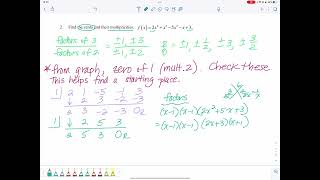 2. Find the zeros and their multiplicities. f(x) = 2x⁴ + x³ - 5x² - x + 3
factors of 3
factors of 2
±1, ±3
±1, ±2
±1, ± 1/2, ± 3, ± 3/2
*from graph, zero of 1 (mult. 2). Check these
This helps find a starting place.
1| 2 1 -5 -1 3
↓ 2 3 -2 -3
2 3 -2 -3 0R
1| ↓ 2 5 3
2 5 3 0R
factors
(x-1)(x-1)(2x²+5x+3)
=(x-1)(x-1)(2x+3)(x+1)